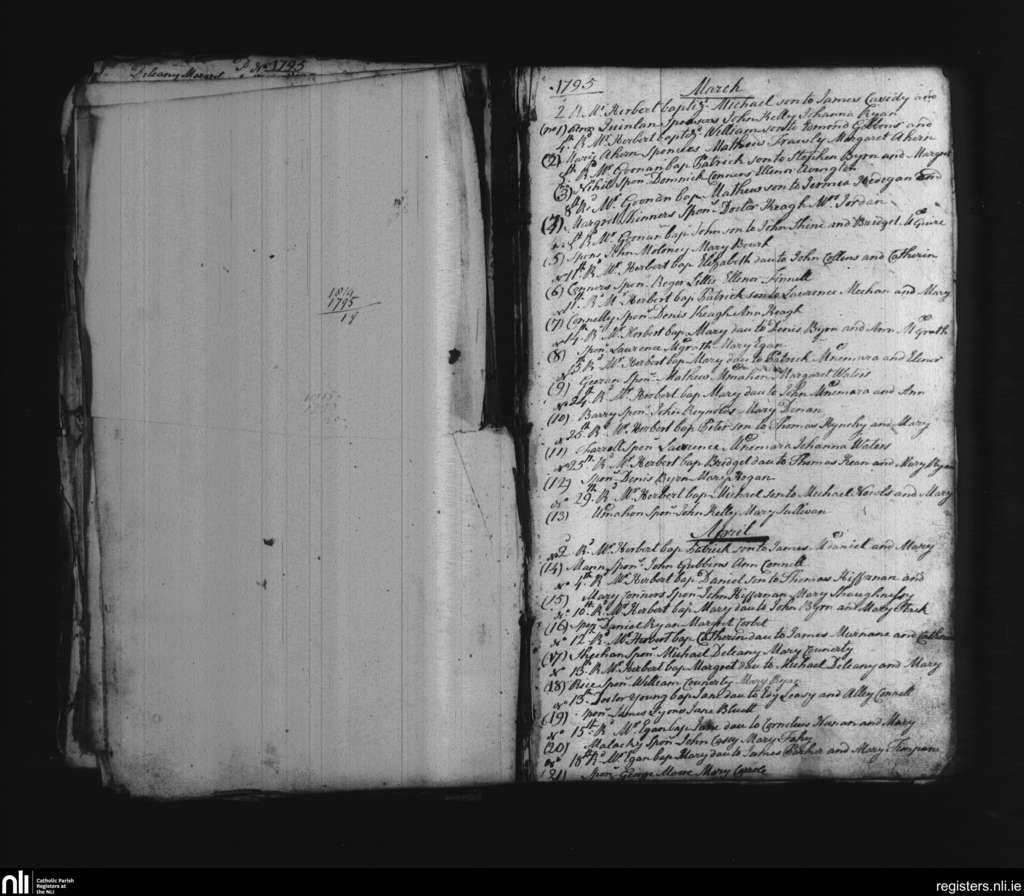 Deleany Margret P 3rd 1795
1814
1795
19
1795
March
2 Rd Mr Herbert baptiz. Michael son to James Cassidy and
(no 1) Quinlan Sponsors John Kelly Johanna Ryan
4th Rd Mr Herbert baptizd William son to Edmond Gibbons and
(2) Mary Ahern Sponcers Mathew Frawly Margaret Ahern
5th Rd Mr Goonan bap Patrick son to Stephen Byrn and Margret
(3) Nihill Spon. Domnick Conners Ellenor Arrington
8th Rd Mr Goonan bap Mathew son to Jermea Hedegan and
(4) Margret Skinners Spon. Doctor Keagh Mrs Jordan
Rd Mr Goonan bap John son to John Shine and Bridget McGuire
(5) Spons John Moloney Mary Bourk
no 11th Rd Mr Herbert bap Elizabeth dau to John Collins and Catherin
(6) Conners Spon. Roger Lillis Ellenor Finnell
no 11th Rd Mr Herbert bap Patrick son to Lawrence Meehan and Mary
(7) Connelly Spon. Denis Keagh Ann Keagh
no 14th Rd Mr Herbert bap Mary dau to Denis Byrn and Ann McGrath
(8) Spon. Lawrence McGrath Mary Egan
no 15th Rd Mr Herbert bap Mary dau to Patrick McNemara and Elenor
(9) Geeran Spon. Mathew McMahon Margaret Waters
no 24th Rd Mr Herbert bap Mary dau to John McNemara and Ann
(10) Barry Spon. John Reynolds Mary Dinan
no 25th Rd Mr Herbert bap Peter son to Thomas Hynchy and Mary
(11) Farrell Spon. Lawrence McNemara Johanna Waters
no 25th Rd Mr Herbert bap Bridget dau to Thomas Kean and Mary Ryan
(12) Spon. Denis Byrn Mary Hogan
no 29th Rd Mr Herbert bap Michael son to Michael Nowls and Mary
(13) McMahon Spon. John Kelly Mary Sullivan
April
no 2d Rd Mr Herbert bap Patrick son to James McDaniel and Mary
(14) Mann Spon. John Gubbins Ann Connell
no 4th Rd Mr Herbert bap Daniel son to Thomas Hiffernan and
(15) Mary Conners Spon. John Hiffernan Mary Shaughnessy
no 10th Rd Mr Herbert bap Mary dau to John Byrn and Mary Stack
(16) Spon. Daniel Ryan Margret Corbet
no 12 Rd Mr Herbert bap Catherin dau to James Murnane and
(17) Sheehan Spon. Michael Deleany Mary Counerty
no 13th Rd Mr Herbert bap Margret dau to Michael Deleany and Mary
(18) Rice Spon. William Counerty Mary Ryan
no 15th Doctor Young bap Jane dau to Edy Leasy and Alley Connell
(19) Spon. James Lyons Jane Bluett
no 15th Rd Mr Egan bap Jane dau to Cornelius Hanan and Mary
(20) Malachy Spon John Casey Mary Fahy
no 18th Rd Mr Egan bap Mary dau to James Barker and Mary Timpane
(21) Spon. George Moore Mary Carole
nli
Catholic Parish
Registers at
the NLI
registers.nli.ie